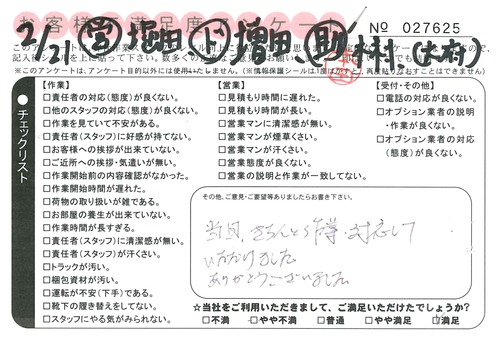 お客様満足度アンケート
№ 027625
2/21 営 堀田、下 増田、助 木村(大府)
※このアンケートは、アンケート目的以外には使用いたしません。(※情報保護シールは1度はがすと、再度貼りなおすことはできません)
チェックリスト
【作業】
□責任者の対応(態度)が良くない。
□他のスタッフの対応(態度)が良くない。
□作業を見ていて不安がある。
□責任者(スタッフ)に好感が持てない。
□お客様への挨拶が出来ていない。
□ご近所への挨拶・気遣いが無い。
□作業開始前の内容確認がなかった。
□作業開始時間が遅れた。
□荷物の取り扱いが雑である。
□お部屋の養生が出来ていない。
□作業時間が長すぎる。
□責任者(スタッフ)に清潔感が無い。
□責任者(スタッフ)が汗くさい。
□トラックが汚い。
□梱包資材が汚い。
□運転が不安(下手)である。
□靴下の履き替えをしてない。
□スタッフにやる気がみられない。
【営業】
□見積もり時間に遅れた。
□見積もり時間が長い。
□営業マンに清潔感が無い。
□営業マンが煙草くさい。
□営業マンが汗くさい。
□営業態度が良くない。
□営業の説明と作業が一致してない。
【受付・その他】
□電話の対応が良くない。
□オプション業者の説明
・作業が良くない。
□オプション業者の対応
(態度)が良くない。
その他、ご意見・ご要望等ありましたらお書き下さい。
当日、きちんと作業・対応して
いただけました
ありがとうございました
☆当社をご利用いただきまして、ご満足いただけたでしょうか?
□不満 □やや不満 □普通 □やや満足 □満足